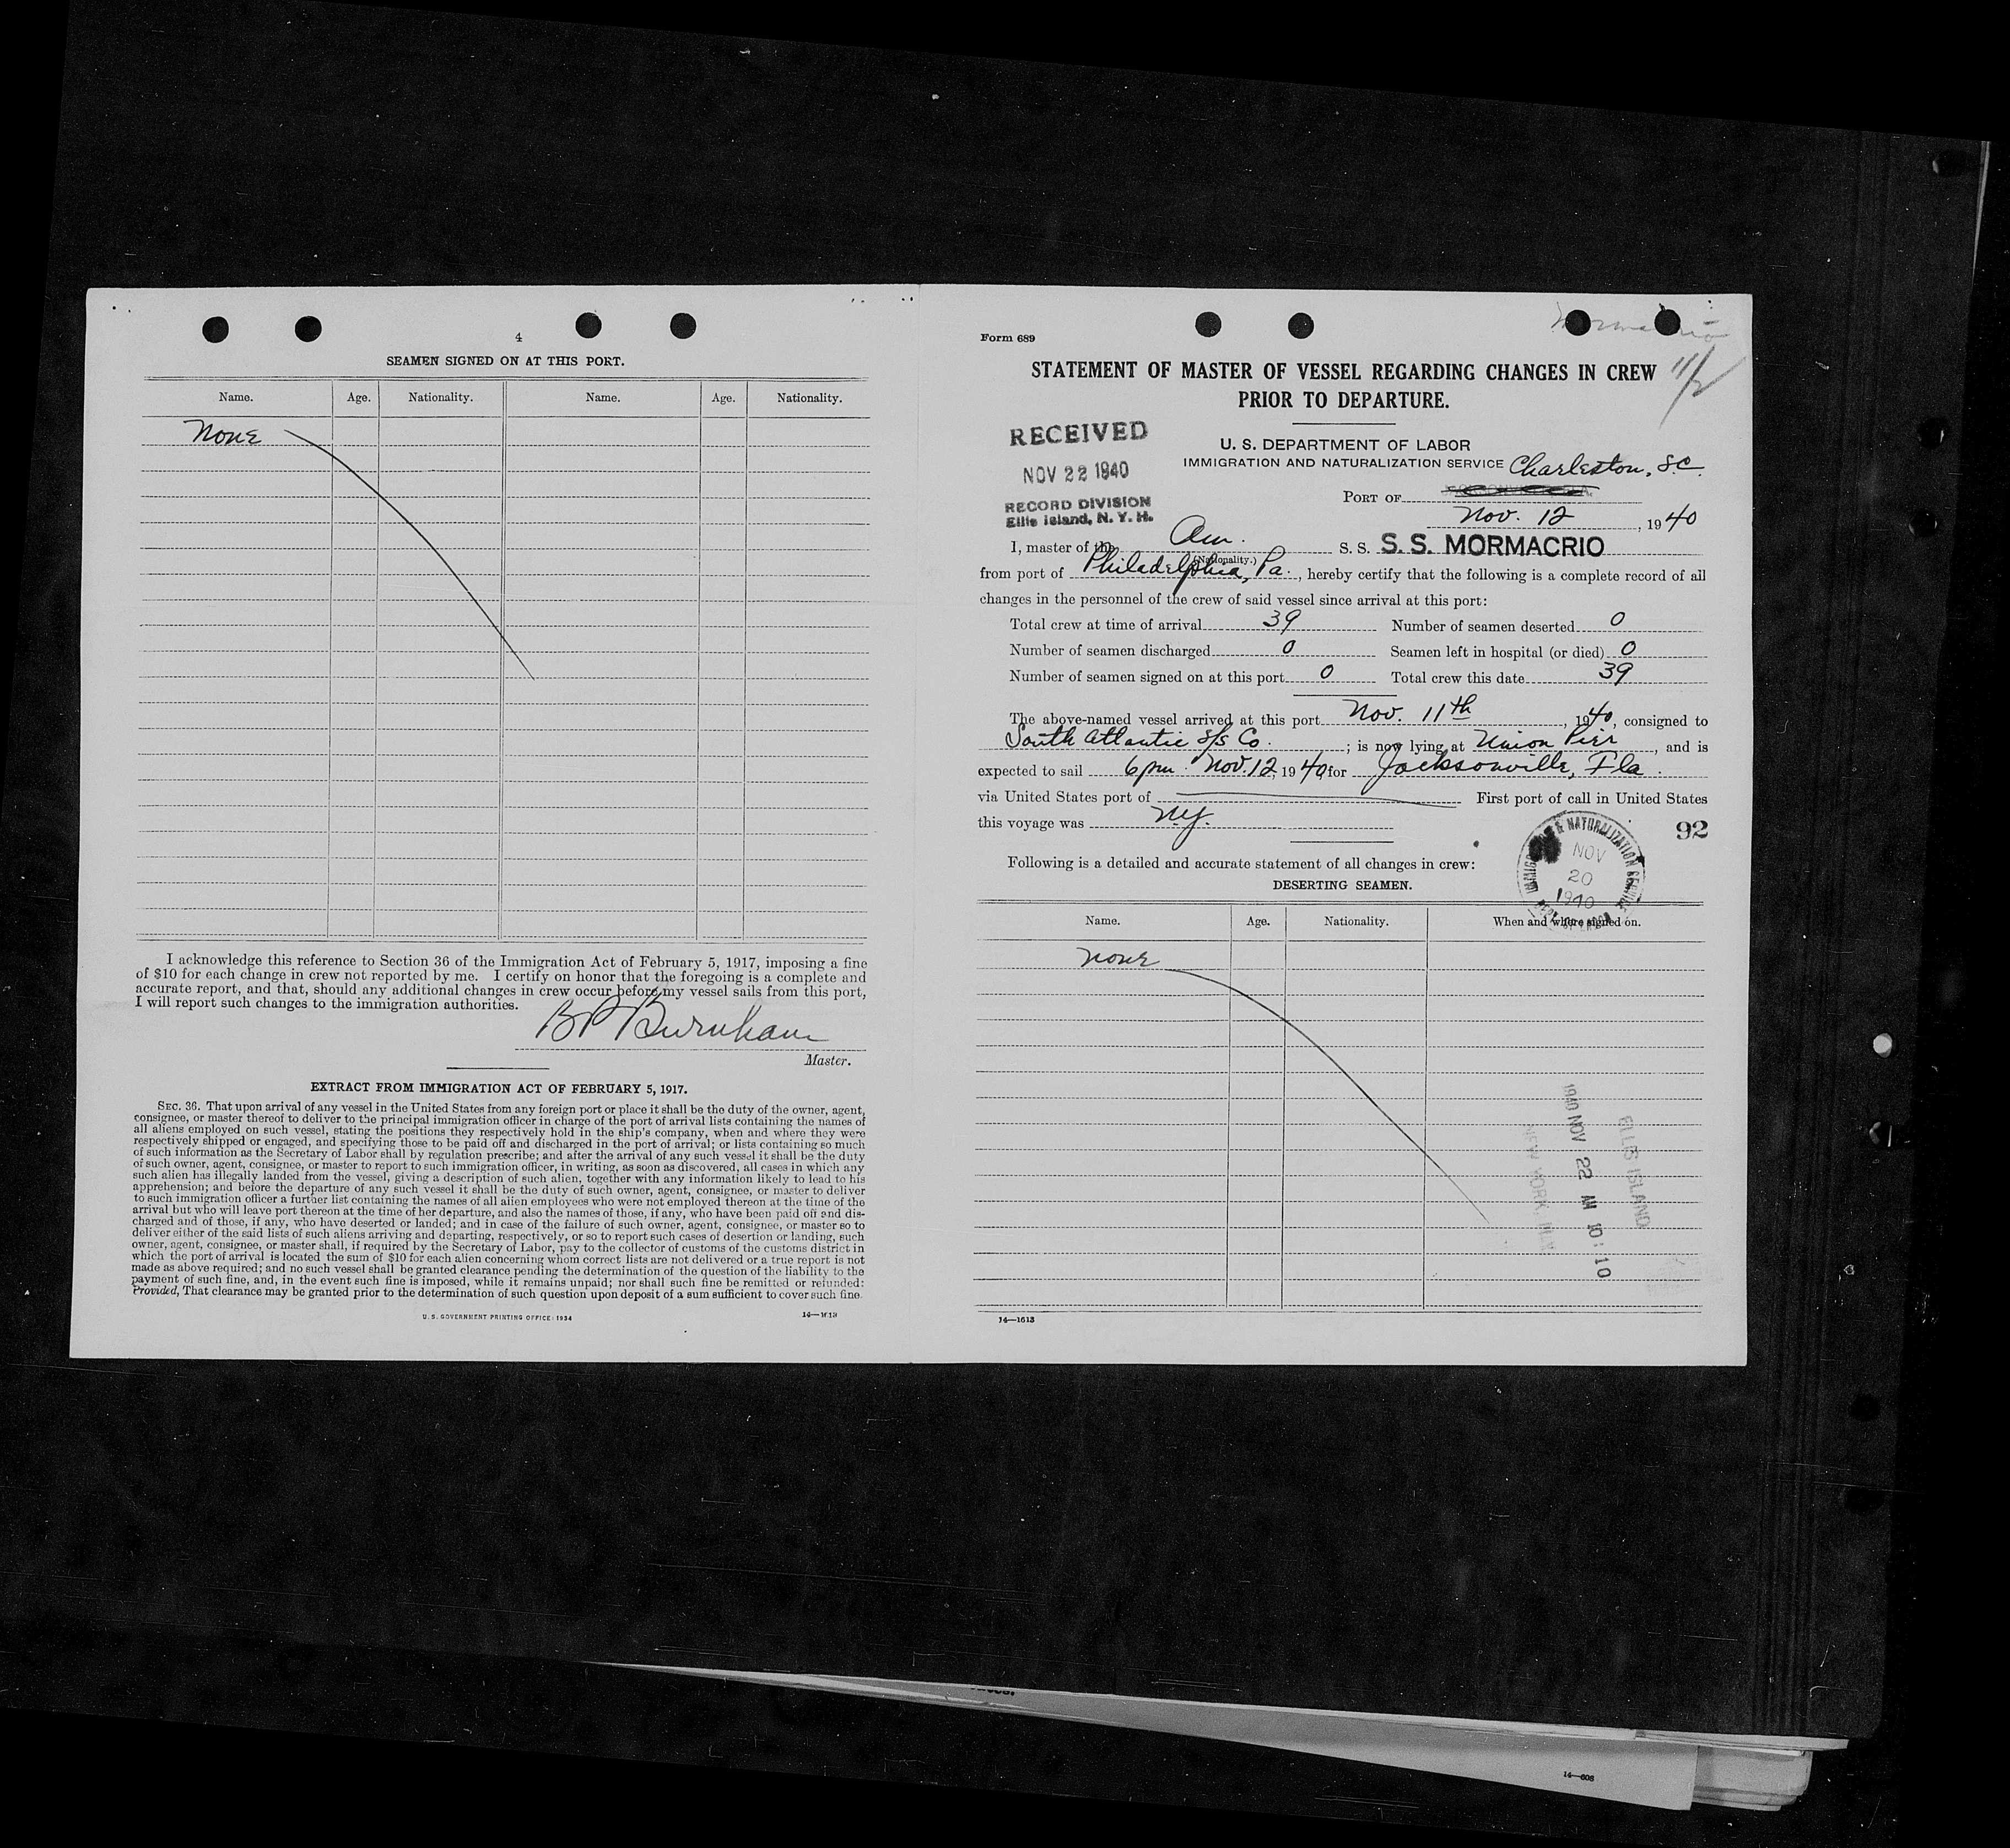 4
SEAMEN SIGNED ON AT THIS PORT.
Name. Age. Nationality. Name. Age. Nationality.
None
I acknowledge this reference to Section 36 of the Immigration Act of February 5, 1917, imposing a fine
of $10 for each change in crew not reported by me. I certify on honor that the foregoing is a complete and
accurate report, and that, should any additional changes in crew occur before my vessel sails from this port,
I will report such changes to the immigration authorities.
B P Burnham
Master.
EXTRACT FROM IMMIGRATION ACT OF FEBRUARY 5, 1917.
SEC. 36. That upon arrival of any vessel in the United States from any foreign port or place it shall be the duty of the owner, agent,
consignee, or master thereof to deliver to the principal immigration officer in charge of the port of arrival lists containing the names of
all aliens employed on such vessel, stating the positions they respectively hold in the ship's company, when and where they were
respectively shipped or engaged, and specifying those to be paid off and discharged in the port of arrival; or lists containing so much
of such information as the Secretary of Labor shall by regulation prescribe; and after the arrival of any such vessel it shall be the duty
of such owner, agent, consignee, or master to report to such immigration officer, in writing, as soon as discovered, all cases in which any
such alien has illegally landed from the vessel, giving a description of such alien, together with any information likely to lead to his
apprehension; and before the departure of any such vessel it shall be the duty of such owner, agent, consignee, or master to deliver
to such immigration officer a further list containing the names of all alien employees who were not employed thereon at the time of the
arrival but who will leave port thereon at the time of her departure, and also the names of those, if any, who have been paid off and dis-
charged and of those, if any, who have deserted or landed; and in case of the failure of such owner, agent, consignee, or master so to
deliver either of the said lists of such aliens arriving and departing, respectively, or so to report such cases of desertion or landing, such
owner, agent, consignee, or master shall, if required by the Secretary of Labor, pay to the collector of customs of the customs district in
which the port of arrival is located the sum of $10 for each alien concerning whom correct lists are not delivered or a true report is not
made as above required; and no such vessel shall be granted clearance pending the determination of the question of the liability to the
payment of such fine, and, in the event such fine is imposed, while it remains unpaid; nor shall such fine be remitted or refunded:
Provided, That clearance may be granted prior to the determination of such question upon deposit of a sum sufficient to cover such fine.
U. S. GOVERNMENT PRINTING OFFICE: 1934 14—1613
Form 689
STATEMENT OF MASTER OF VESSEL REGARDING CHANGES IN CREW
PRIOR TO DEPARTURE.
RECEIVED
NOV 22 1940
RECORD DIVISION
Ellis Island, N. Y. H.
U. S. DEPARTMENT OF LABOR
IMMIGRATION AND NATURALIZATION SERVICE Charleston, S.C.
PORT OF
Nov. 12, 1940
I, master of the Am. S. S. S. S. MORMACRIO
(Nationality.)
from port of Philadelphia, Pa., hereby certify that the following is a complete record of all
changes in the personnel of the crew of said vessel since arrival at this port:
Total crew at time of arrival 39 Number of seamen deserted 0
Number of seamen discharged 0 Seamen left in hospital (or died) 0
Number of seamen signed on at this port 0 Total crew this date 39
The above-named vessel arrived at this port Nov. 11th, 1940, consigned to
South Atlantic S/S Co.; is now lying at Union Pier, and is
expected to sail 6pm Nov. 12, 1940, for Jacksonville, Fla.
via United States port of First port of call in United States
this voyage was N.Y.
92
Following is a detailed and accurate statement of all changes in crew:
IMMIGRATION & NATURALIZATION SERVICE
NOV
20
1940
DESERTING SEAMEN.
Name. Age. Nationality. When and where signed on.
None
ELLIS ISLAND
1940 NOV 22 AM 10:10
14—1613
14—608